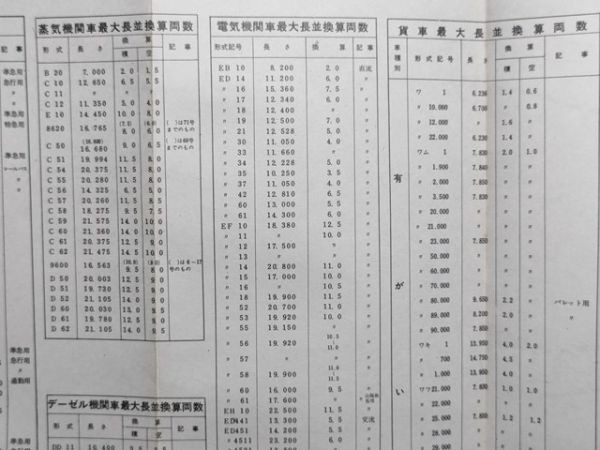 記事
準急用
急行用
〃
準急用
特急用
準急用
〃
〃
準急用
急行用
〃
通勤用
蒸気機関車最大長並換算両数
形式 長さ 換算 記事
積 空
B 20 7,000 2.0 1.5
C 10 12,650 6.5 5.5
C 11 〃 〃 〃
C 12 11,350 5.0 4.0
E 10 14,450 10.0 8.0
8620 16,765 (7.5) 8.0 6.0
までのもの
C 50 16,680 9.0 6.5
までのもの
C 51 19,994 11.5 8.0
C 54 20,375 11.5 8.0
C 55 20,280 11.5 8.0
C 56 14,325 6.5 5.0
C 57 20,260 11.5 8.5
C 58 18,275 9.5 7.5
C 59 21,575 14.0 10.0
C 60 21,360 14.0 10.0
C 61 20,375 12.5 9.0
C 62 21,475 14.5 10.0
9600 16,563 9.5 8.0
のもの
D 50 20,003 12.5 9.0
D 51 19,730 12.5 9.0
D 52 21,105 14.0 9.0
D 60 20,030 13.0 9.0
D 61 19,780 12.5 9.0
D 62 21,105 14.0 9.0
デーゼル機関車最大長並換算両数
形式 長さ 換算 記事
積 空
DD 11
電気機関車最大長並換算両数
形式記号 長さ 換算 記事
ED 10 9,200 2.0 直流
ED 14 11,200 6.0 〃
〃 16 15,360 7.5 〃
〃 17 12,340 6.0 〃
〃 18 〃 〃 〃
〃 19 12,500 7.0 〃
〃 21 12,528 5.0 〃
〃 30 11,050 4.0 〃
〃 33 11,660 〃 〃
〃 34 12,228 5.0 〃
〃 35 10,250 3.5 〃
〃 37 11,050 4.0 〃
〃 42 12,810 6.5 〃
〃 60 13,000 5.5 〃
〃 61 14,300 6.0 〃
EF 10 18,380 12.5 〃
〃 11 〃 10.0 〃
〃 12 17,500 〃 〃
〃 13 〃 〃 〃
〃 14 20,800 11.0 〃
〃 15 17,000 10.0 〃
〃 16 〃 10.5 〃
〃 18 19,900 11.5 〃
〃 52 20,700 11.0 〃
〃 53 19,920 10.0 〃
〃 55 19,150 〃 〃
〃 56 19,920 10.5 11.0 〃
〃 57 〃 〃 〃
〃 58 19,900 11.0 11.5 〃
〃 60 16,000 9.5 〃
〃 61 17,600 〃
EH 10 22,500 11.5 〃
ED441 13,300 5.5 交流
ED451 14,200 5.5 〃
〃4511 23,200 6.0 〃
貨車最大長並換算両数
車種別 形式記号 長さ 換算 記事
積 空
有がい
ワ 1 6,236 1.4 0.6
〃 10,000 6,700 〃 0.8
〃 12,000 〃 1.6 〃
〃 22,000 6,230 1.4 〃
ワム 1 7,830 2.0 1.0
〃 1,900 7,840 〃 〃
〃 2,000 7,850 〃 〃
〃 3,500 7,830 〃 〃
〃 20,000 〃 〃 〃
〃 21,000 〃 〃 〃
〃 23,000 7,850 〃 〃
〃 50,000 〃 〃 〃
〃 60,000 〃 〃 〃
〃 70,000 〃 〃 〃
〃 80,000 9,650 2.2 〃 パレット用
〃 89,000 8,200 2.0 〃 〃
〃 90,000 7,850 〃 〃
ワキ 1 13,950 4.0 2.0
〃 700 14,750 4.5 〃
〃 1,000 13,900 4.0 〃
ワフ21,000 7,830 1.0 1.0
〃 22,000 〃 〃 〃
〃 25,000 〃 1.2 1.2
〃 28,000 〃 〃 〃
〃 29,000